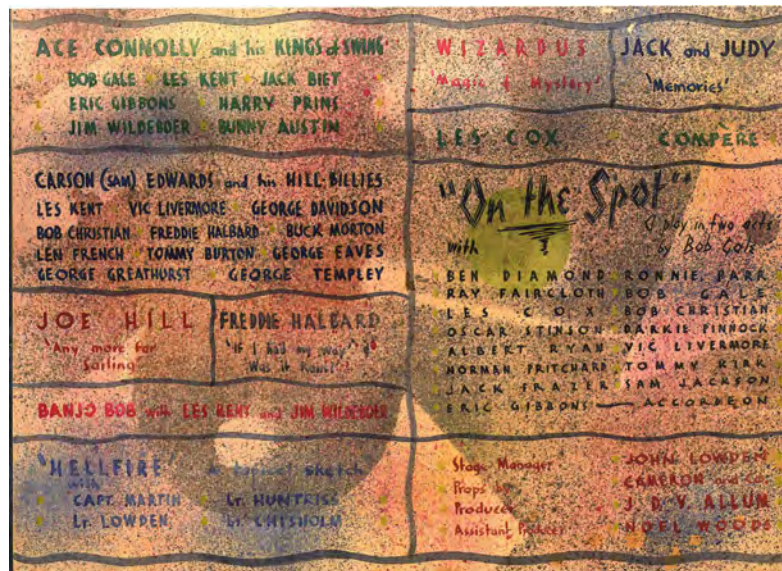 ACE CONNOLLY and his KINGS of SWING
BOB GALE LES KENT JACK BIET
ERIC GIBBONS HARRY PRINS
JIM WILDEBOER BUNNY AUSTIN
CARSON (SAM) EDWARDS and his HILL-BILLIES
LES KENT VIC LIVERMORE GEORGE DAVIDSON
BOB CHRISTIAN FREDDIE HALBARD BUCK MORTON
LEN FRENCH TOMMY BURTON GEORGE EAVES
GEORGE GREATHURST GEORGE TEMPLEY
JOE HILL
"Any more for
Sailing"
FREDDIE HALBARD
"If I had my way"
Was it Rain?"
BANJO BOB with LES KENT and JIM WILDEBOER
"HELLFIRE" a topical sketch
with
CAPT. MARTIN Lt. HUNTRISS
Lt. LOWDEN Lt. CHISHOLM
WIZARDUS
'Magic & Mystery'
JACK and JUDY
'Memories'
LES COX COMPÈRE
"On the Spot"
a play in two acts
by Bob Gale
with ?
BEN DIAMOND RONNIE PARR
RAY FAIRCLOTH BOB GALE
LES COX BOB CHRISTIAN
OSCAR STINSON DARKIE PINNOCK
ALBERT RYAN VIC LIVERMORE
NORMAN PRITCHARD TOMMY KIRK
JACK FRAZER SAM JACKSON
ERIC GIBBONS — ACCORDEON
Stage Manager JOHN LOWDEN
Props by CAMERON and Co.
Producer J. D. V. ALLUM
Assistant Producer NOEL WOODS